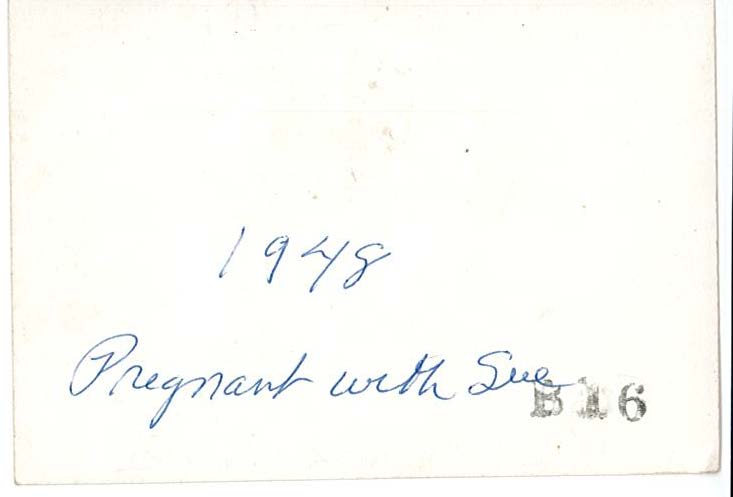 1948
Pregnant with Sue
B16